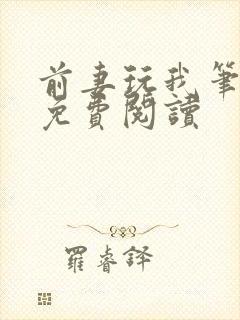 前妻玩我筆
免費閱讀
羅睿鐸